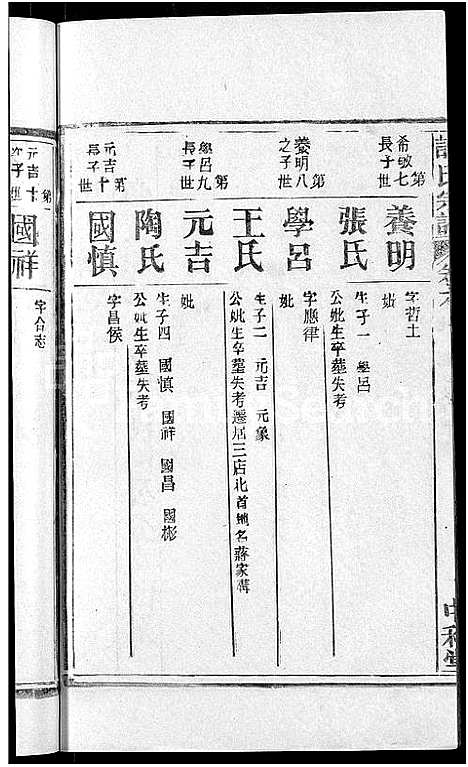 氏宗譜
卷六
中和堂
第七世
希敏長子
養明
字哲士
妣
張氏
生子一 學呂
公妣生卒墓失考
第八世
養明之子
學呂
字應律
妣
王氏
生子二 元吉 元象
公妣生卒墓失考遷居三店北首地名蔣家
第九世
學呂長子
元吉
妣
陶氏
生子四 國慎 國祥 國昌 國彬
公妣生卒墓失考
第十世
元吉長子
國慎
字昌侯
第十世
元吉子
國祥
字合志